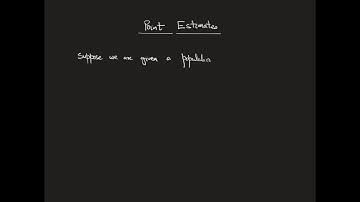 Point Estimates
Suppose we are given a population